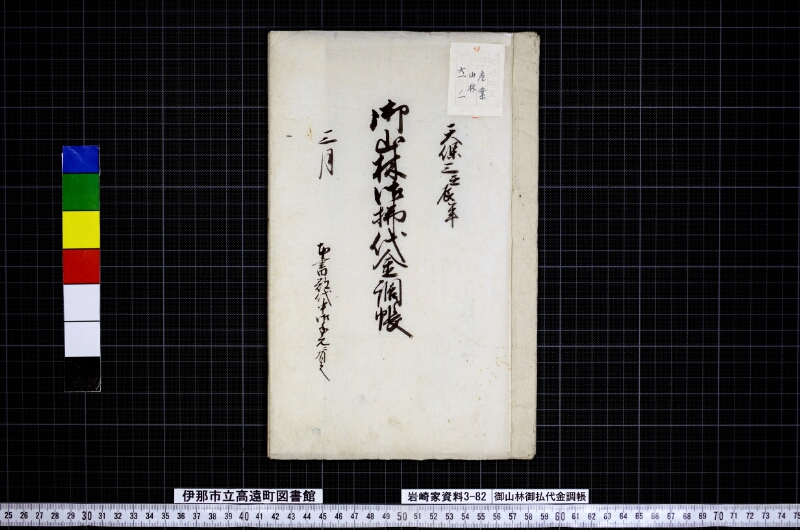 産業
山林
六ノ一
天保三壬辰年
御山林御拂代金調帳
三月
伊那市立高遠町図書館
岩崎家資料3-82
御山林御払代金調帳
25 26 27 28 29 30 31 32 33 34 35 36 37 38 39 40 41 42 43 44 45 46 47 48 49 50 51 52 53 54 55 56 57 58 59 60 61 62 63 64 65 66 67 68 69 70 71 72 73 74 75